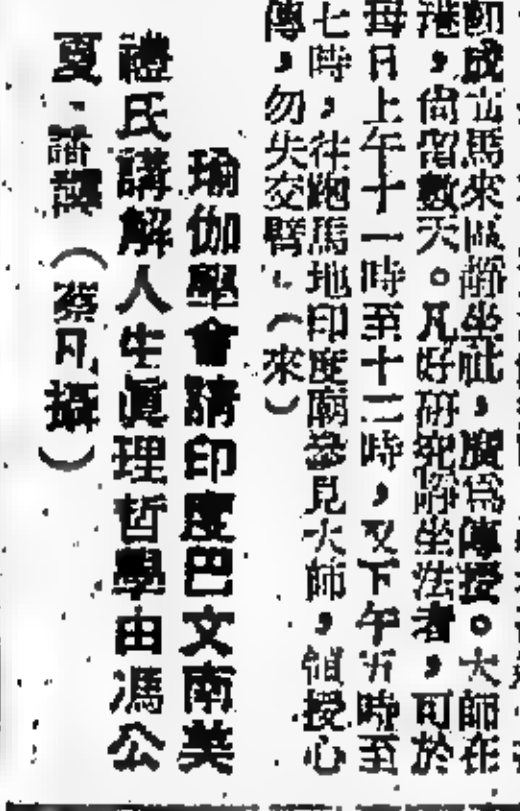 創成立馬來區靜坐社，廣爲傳授。大師在
港，尚留數天。凡好研究靜坐法者，可於
每日上午十一時至十二時，又下午五時至
七時，往跑馬地印度廟參見大師，領授心
傳，勿失交臂。（來）
瑜伽學會請印度巴文南美
禮氏講解人生眞理哲學由馮公
夏、譯（蔡凡攝）